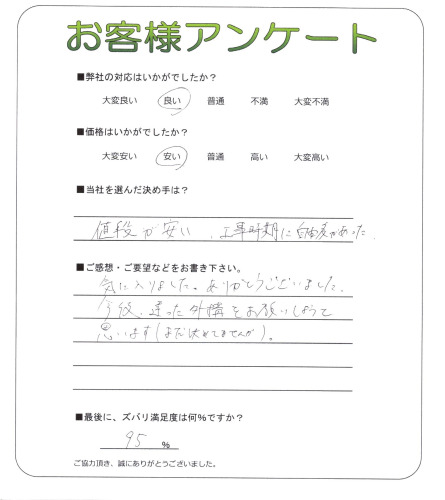 お客様アンケート
■弊社の対応はいかがでしたか？
大変良い 良い 普通 不満 大変不満
■価格はいかがでしたか？
大変安い 安い 普通 高い 大変高い
■当社を選んだ決め手は？
値段が安い、工事時期に自由度があった。
■ご感想・ご要望などをお書き下さい。
気に入りました。ありがとうございました。
今後、違った外構をお願いしようと
思います(まだ決めてませんが)。
■最後に、ズバリ満足度は何％ですか？
95 ％
ご協力頂き、誠にありがとうございました。